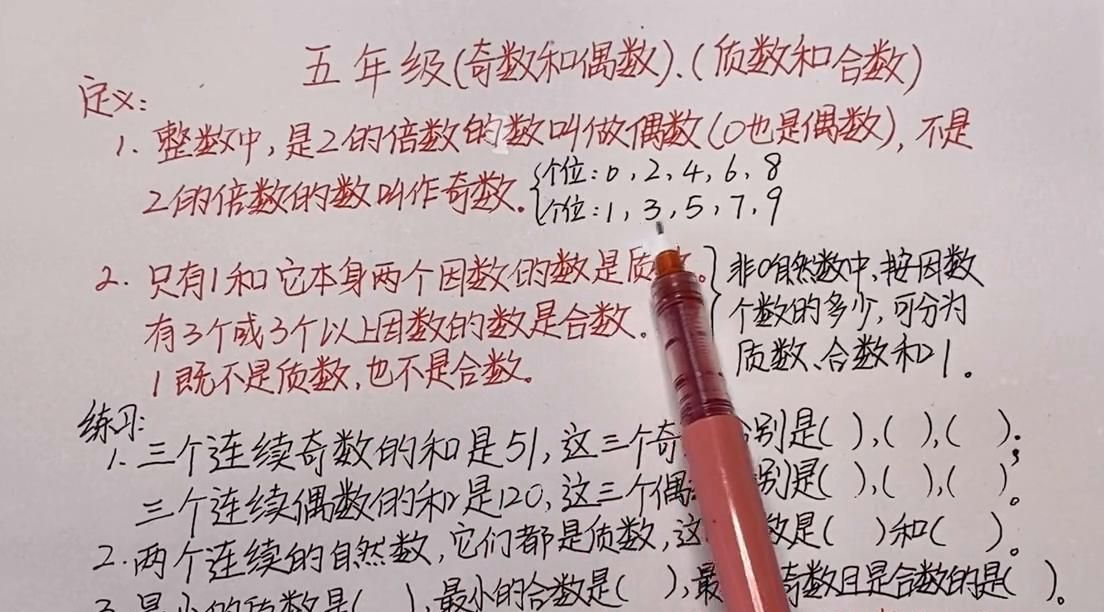 五年级(奇数和偶数)、(质数和合数)
定义:
1. 整数中,是2的倍数的数叫做偶数(0也是偶数),不是
2的倍数的数叫作奇数。
个位:0,2,4,6,8
个位:1,3,5,7,9
2. 只有1和它本身两个因数的数是质 。
有3个或3个以上因数的数是合数。
1既不是质数,也不是合数。
非0自然数中,按因数
个数的多少,可分为
质数、合数和1。
练习:
1. 三个连续奇数的和是51,这三个奇 别是( ),( ),( );
三个连续偶数的和是120,这三个偶 别是( ),( ),( )。
2. 两个连续的自然数,它们都是质数,这 数是( )和( )。
3. 最小的质数是( ),最小的合数是( ),最 奇数且是合数的是( )。